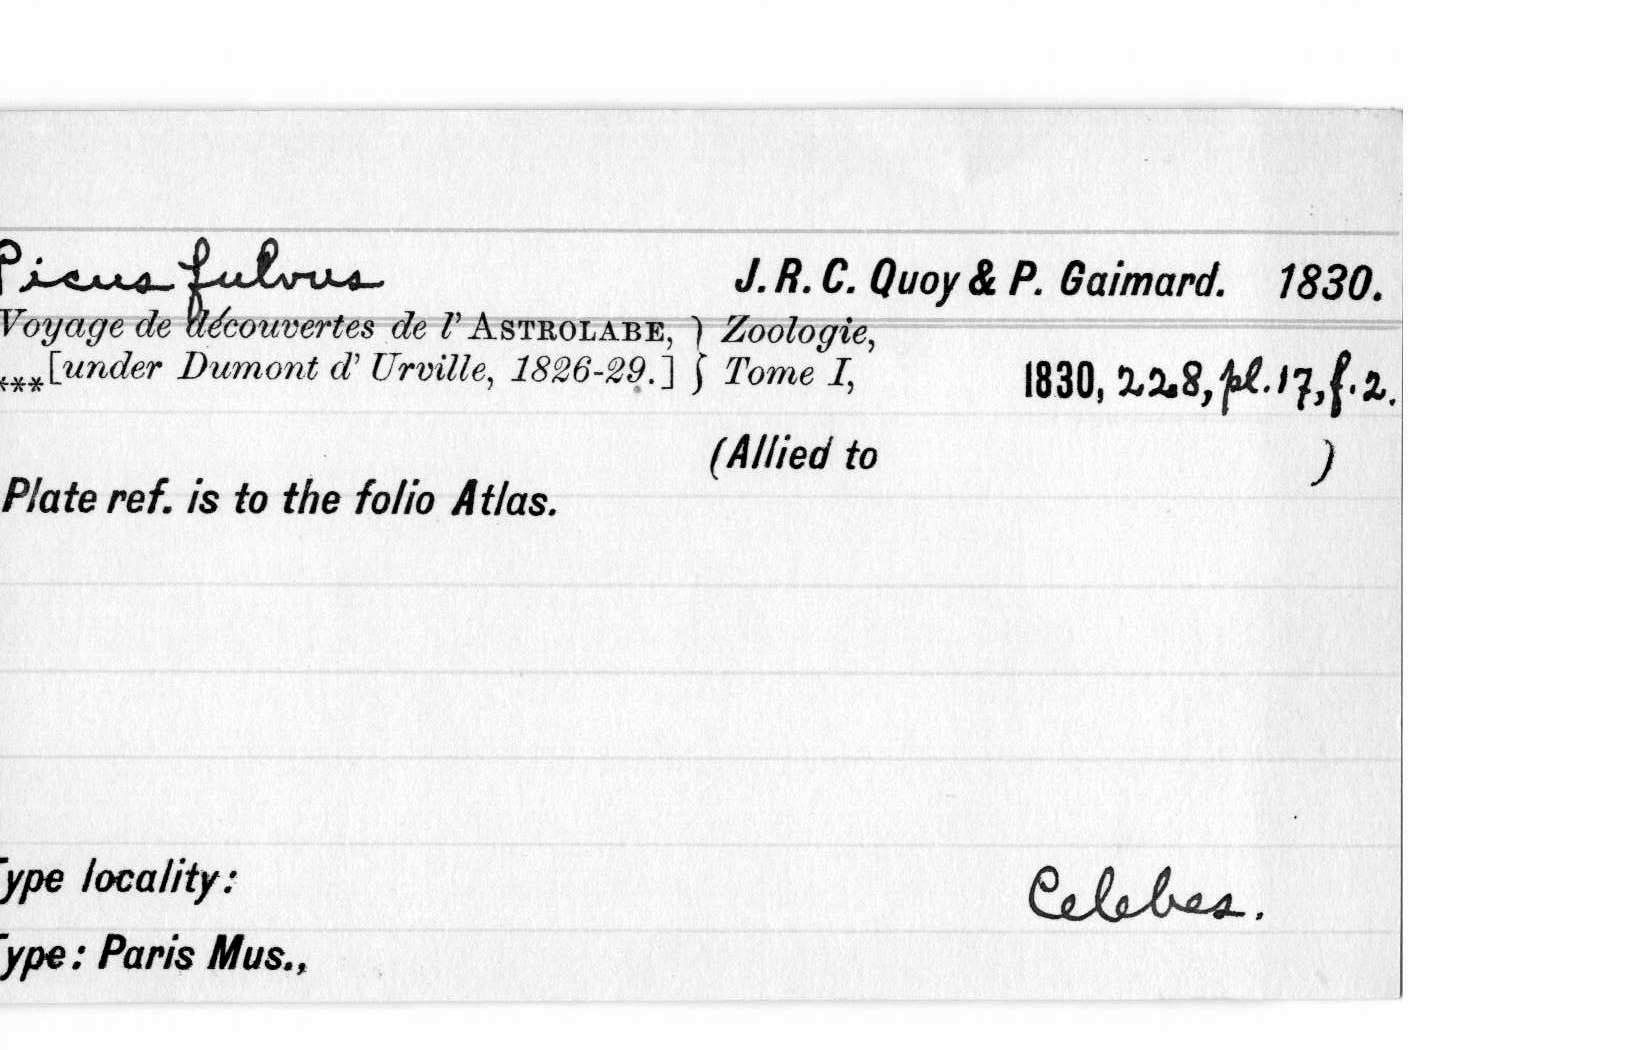 Picus fulvus J. R. C. Quoy & P. Gaimard. 1830.
Voyage de découvertes de l' ASTROLABE, } Zoologie,
***[under Dumont d' Urville, 1826-29.] } Tome I, 1830, 228, pl. 17, f. 2.
(Allied to )
Plate ref. is to the folio Atlas.
Type locality: Celebes.
Type: Paris Mus.,